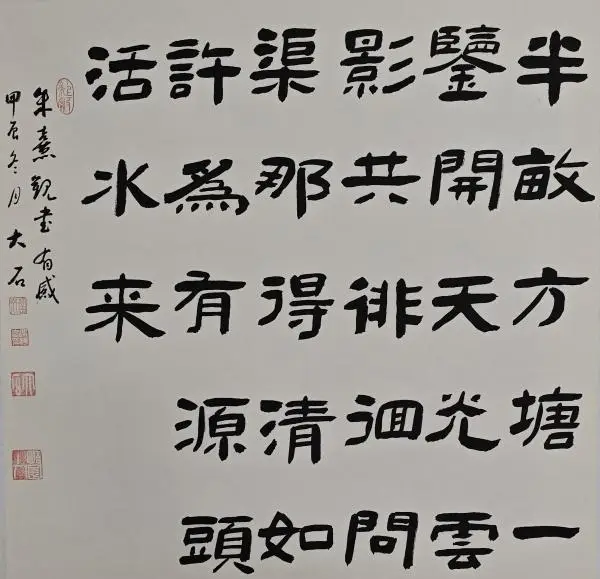 半畝方塘一
鑒開天光雲
影共徘徊問
渠那得清如
許為有源頭
活水来
朱熹觀書有感
甲辰冬月大石